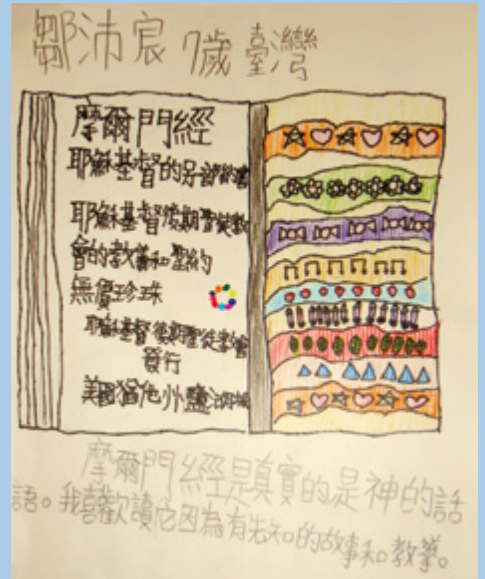 鄒沛宸 7歲 臺灣
摩爾門經
耶穌基督的另一部約書
耶穌基督後期聖徒教
會的教義和聖約
無價珍珠
耶穌基督後期聖徒教會
發行
美國猶他州鹽湖城
摩爾門經是真實的是神的話
語。我喜歡讀它因為有先知的故事和教導。